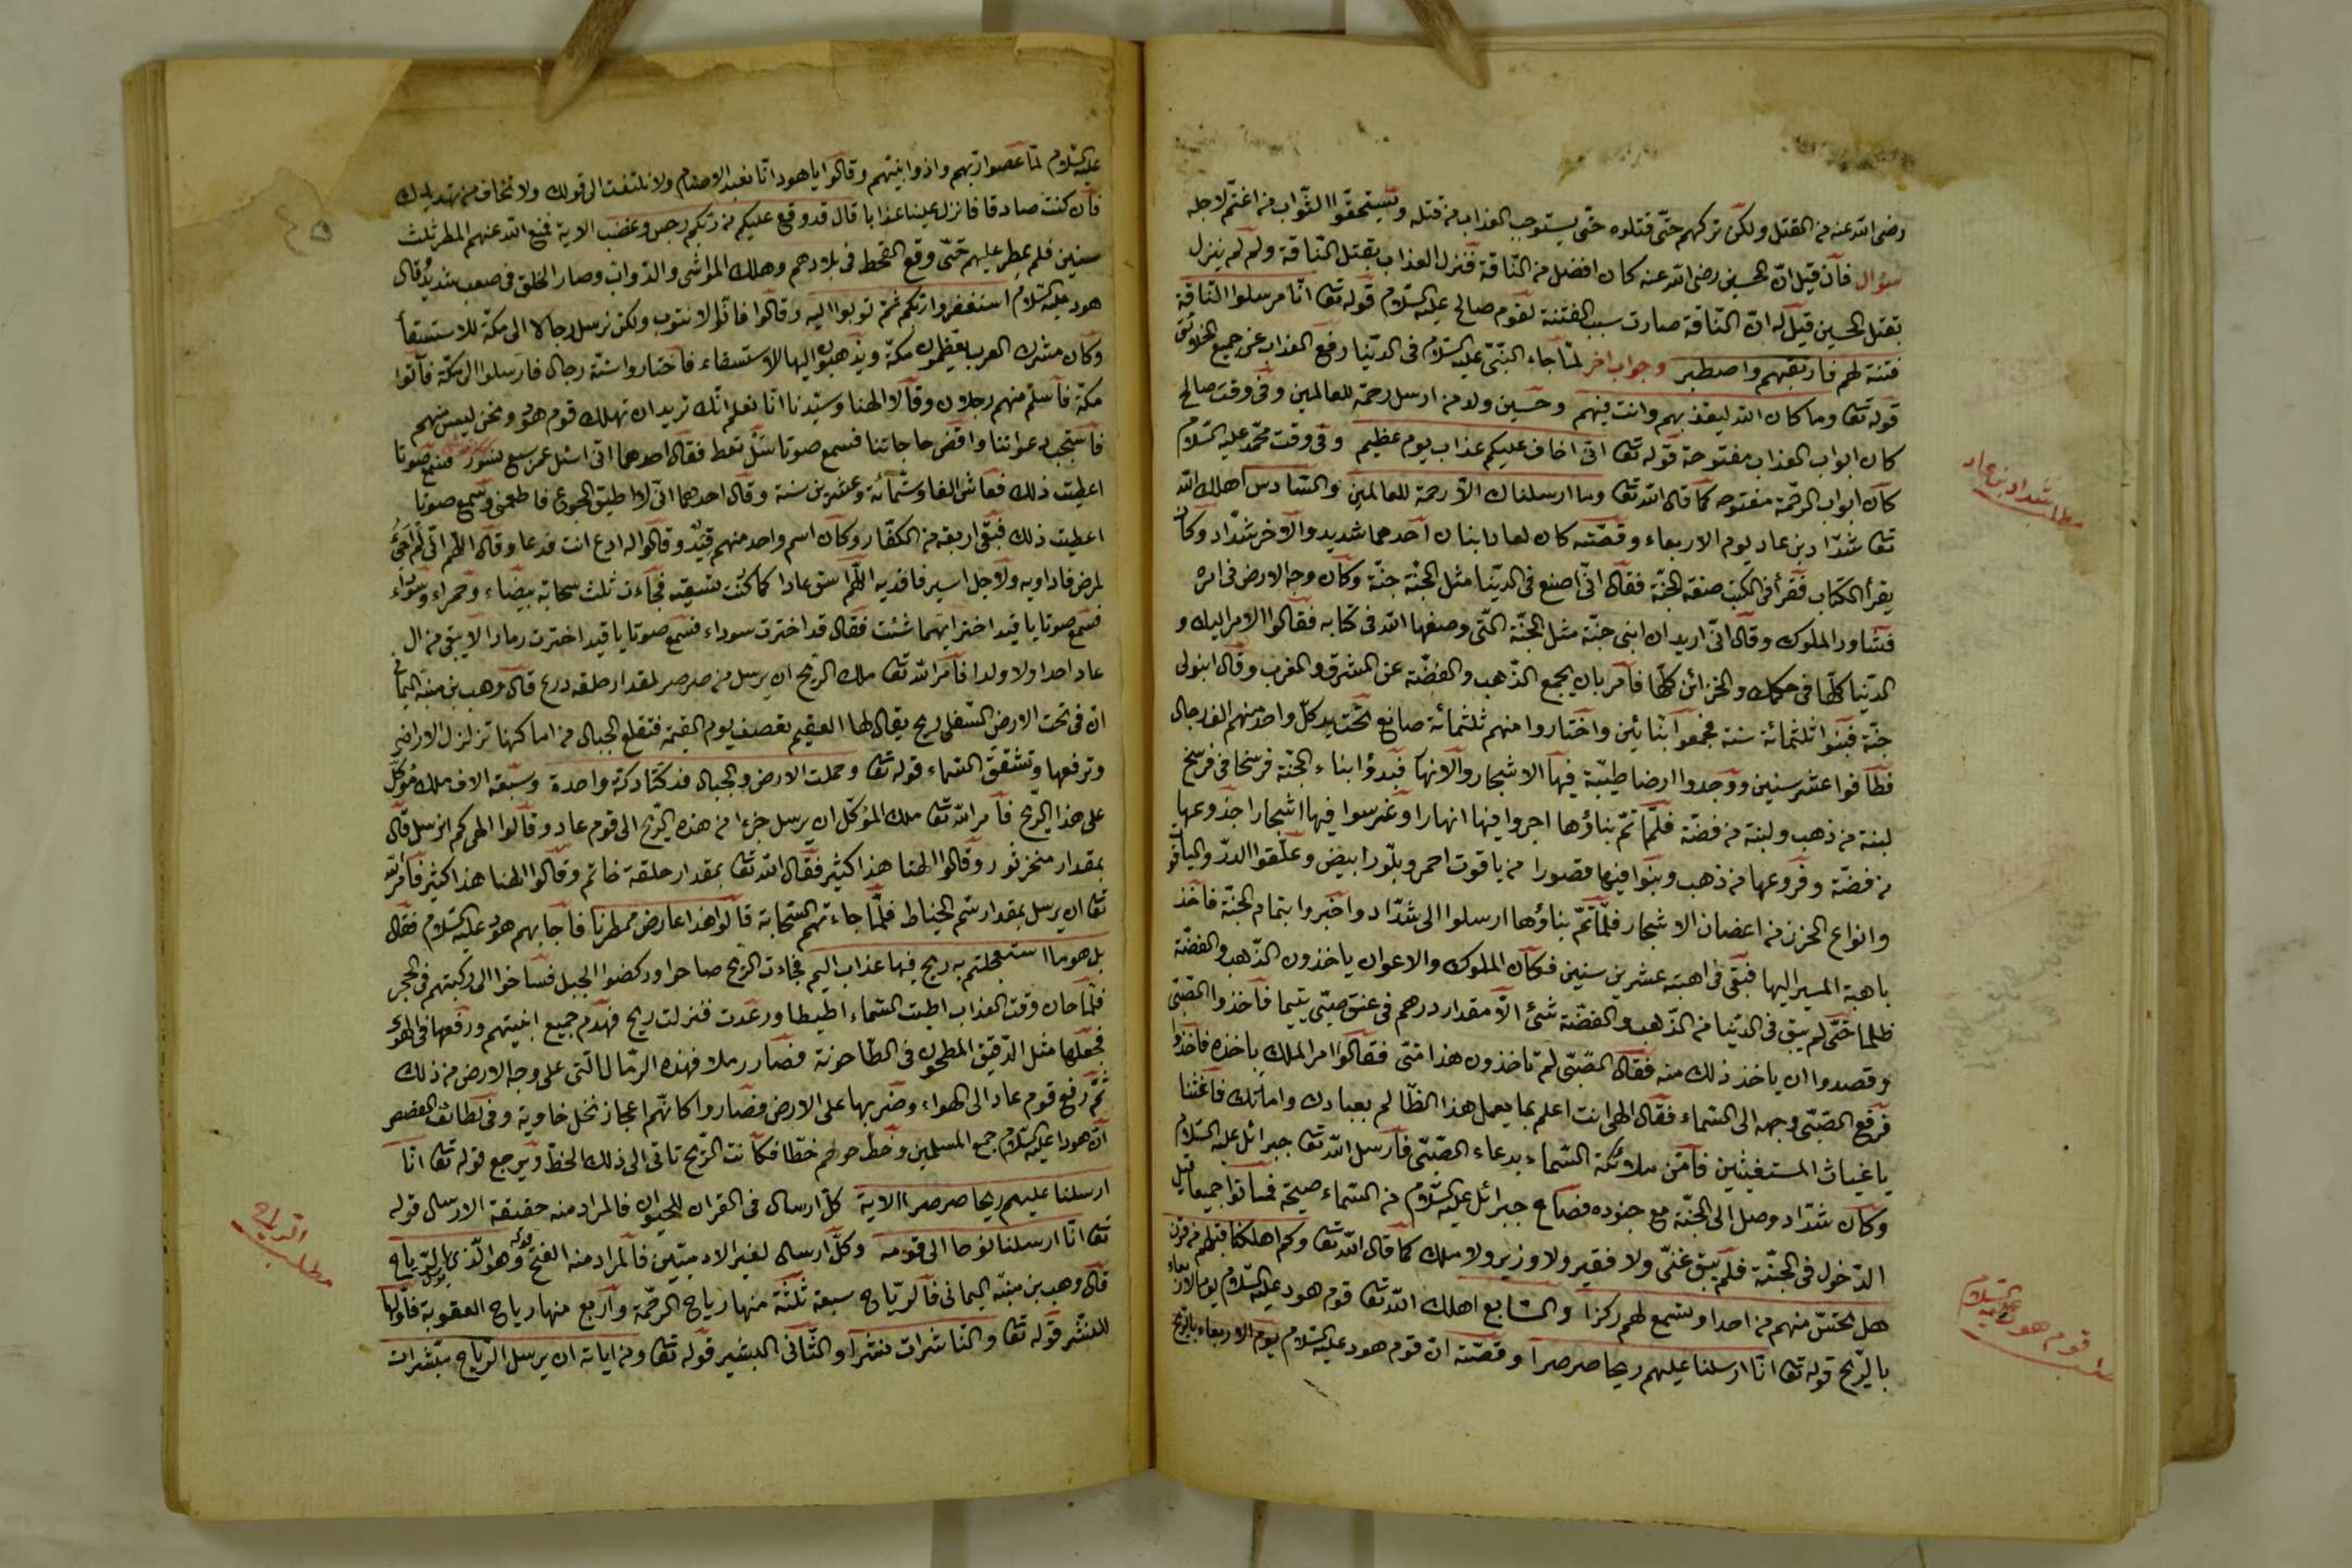 رضى الله عنه من القتل ولكن تركهم حتّى قتلوه حتّى يستوجب العذاب من قتله ويستحقوا الثّواب من اغتمّ لاجله
سؤال فأن قيل انّ الحسين رضى الله عنه كان افضل من النّاقة فنزل العذاب بقتل النّاقة ولم لم ينزل
بقتل الحسين قيل له انّ النّاقة صارت سبب الفتنة لقوم صالح عليه السّلام قوله تعا انّا مرسلوا النّاقة
فتنة لهم فارتقبهم واصطبر وجواب اخر لمّا جاء النّبىّ عليه السّلام فى الدّنيا رفع العذاب عن جميع الخلائق
قوله تعا وما كان الله ليعذّبهم وانت فيهم وحسين ولد من ارسل رحمة للعالمين وفى وقت صالح
كان ابواب العذاب مفتوحة قوله تعا انّى اخاف عليكم عذاب يوم عظيم وفى وقت محمّد عليه السّلام
كان ابواب الرحّمة مفتوحه كما قال الله تعا وما ارسلناك الاّ رحمة للعالمين والسّادس اهلك الله
تعا شدّاد بن عاد يوم الاربعاء وقصّته كان لعاد ابنان احدهما شديد والاخر شدّاد وكان
يقرأ الكتاب فقرأ فى الكتب صفة الجنّة فقال انّى اصنع فى الدّنيا مثل الجنّة جنّة وكان وجه الارض فى امره
فشاور الملوك وقال انّى اريد ان ابنى جنّة مثل الجنّة الّتى وصفها الله فى كتابه فقالوا الامر اليك و
الدّنيا كلّها فى حكمك والخزائن كلّها فأمر بان يجمع الذّهب والفضّة عن المشرق والمغرب وقال ابنولى
جنّة فبنوا ثلثمائة سنة فجمعوا بنّائين واختاروا منهم ثلثمائة صانع تحت يد كلّ واحد منهم الف رجال
فطافوا عشر سنين ووجدوا ارضا طيبّة فيها الاشجار والانهار فبدؤا بناء الجنّة فرسخا فى فرسخ
لبنة من ذهب ولبنة من فضّة فلمّا تمّ بناؤها اجروا فيها انهارا وغرسوا فيها اشجارا جذوعها
من فضّة وفروعها من ذهب وبنوا فيها قصورا من ياقوت احمر وبلّور ابيض وعلّقوا الدرّ والياقو
وانواع الخرز من اغصان الاشجار فلمّا تمّ بناؤها ارسلوا الى شدّاد واخبروا بتمام الجنّة فاخذ
باهبة المسير اليها فبقى فى اهبته عشرين سنين فكان الملوك والاعوان ياخذون الذّهب والفضّة
ظلما حتّى لم يبق فى الدّنيا من الذّهب والفضّة شئ الاّ مقدار درهم فى عنق صبّى يتيما فأخذوا الصّبى
وقصدوا ان ياخذ ذلك منه فقال الصّبّى لم تاخذون هذا منّى فقالوا امر الملك باخذه فاخذوا
فرفع الصّبّى وجهه الى السّماء فقال الهى انت اعلم بما يعمل هذا الظّالم بعبادك وامائك فأغثنا
يا غياث المستغيثين فأمّن ملائكة السّماء بدعاء الصّبّى فأرسل الله تعا جبرائل عليه السّلام
وكان شدّاد وصل الى الجنّة مع جنوده فصاح جبرائل عليه السّلام من السّماء صيحة فماتوا جميعا قبل
الدّخول فى الجنّة فلم يبق غنىّ ولا فقير ولا وزير ولا ملك كما قال الله تعا وكم اهلكنا قبلهم من قرن
هل تحسّ منهم من احد او تسمع لهم ركزا والسّابع اهلك الله تعا قوم هود عليه السّلام يوم الاربعاء
بالرّيح قوله تعا انّا ارسلنا عليهم ريحا صرصرا وقصّته انّ قوم هود عليه السّلام يوم الاربعاء بالرّيح
مطلب شدّاد بن عاد
قوم هود عليه السّلام
عليه السّلام لمّا عصوا ربّهم واذوا نبيّهم وقالوا يا هود انّا نعبد الاصنام ولا نلتفت الى قولك ولا نخاف من تهديدك
فأن كنت صادقا فانزل علينا عذابا قال قد وقع عليكم من ربّكم رجس وغضب الاية فمنع الله عنهم المطر ثلث
سنين فلم يمطر عليهم حتّى وقع القحط فى بلادهم وهلك المواشى والدّوابّ وصار الخلق فى صعب شديد وقال
هود عليه السّلام استغفروا ربّكم ثمّ توبوا اليه وقالوا فانّا لا نتوب ولكن نرسل رجالا الى مكّة للاستسقاء
وكان مشرك العرب يعظمون مكّة ويذهبون اليها لاستسقاء فاختاروا ستّة رجال فارسلوا الى مكّة فأتوا
مكّة فأسلم منهم رجلان وقالا الهنا وسيّدنا انّا نعلم انّك تريد ان تهلك قوم هود ونحن ليس منهم
فأستجب دعواتنا واقض حاجاتنا فسمع صوتا سل تعط فقال احدهما انّى اسئل عمر سبع نسور فسمع صوتا
اعطيت ذلك فعاش الفا وستّمائة وعشرين سنة وقال احدهما انّى لا اطيق الجوع فاطعمنى وسمع صوتا
اعطيت ذلك فبقى اربعة من الكفّار وكان اسم واحد منهم قيد وقالوا له ادع انت فدعا وقال اللّهم انّى لم اجئ
لمرض فاداويه ولا جل اسير فافديه اللّهم اسق عادا كما كنت تسقيه فجاءت ثلث سحابة بيضاء وحمراء وسوداء
فسمع صوتا يا قيد اختر ايّهما شئت فقال قد اخترت سوداء فسمع صوتا يا قيد اخترت رمادا لا يبقى من ال
عاد احدا ولا ولدا فأمر الله تعا ملك الرّيح ان يرسل من صرصر لمقدار حلقه درع قال وهب بن منبّه اليمانى
انّ فى تحت الارض السّفلى ريح يقال لها العقيم تعصف يوم القيمة فتقلع الجبال من اماكنها تزلزل الاراضى
وترفعها وتشقق السّماء قوله تعا وحملت الارض والجبال فدكّتا دكّة واحدة وسبعة الاف ملك مؤكّل
على هذا الرّيح فأمر الله تعا ملك المؤكّل ان يرسل جزءا من هذه الرّيح الى قوم عاد وقالوا الهى كم نرسل قال
بمقدار منخر ثور وقالوا الهنا هذا كثير فقال الله تعا بمقدار حلقة خاتم وقالوا الهنا هذا كثير فأمر الله
تعا ان يرسل بمقدار سمّ الخياط فلمّا جاءتهم السّحابة قالوا هذا عارض ممطرنا فأجابهم هود عليه السّلام فقال
بل هو ما استعجلتم به ريح فيها عذاب اليم فجاءت الرّيح صاحوا وركضوا الجبل فساخوا الى ركبتهم فى الحجر
فلمّا حان وقت العذاب اطّت السّماء اطيطا ورعدت فنزلت ريح فهدم جميع ابنيتهم ورفعها فى الهوى
فجعلها مثل الدّقيق المطحون فى الطّاحونة فصار رملا فهذه الرّمال الّتى على وجه الارض من ذلك
ثمّ رفع قوم عاد الى الهواء وضربها على الارض فصاروا كانّهم اعجاز نخل خاوية وفى لطائف القصص
انّ هودا عليه السّلام جمع المسلمين وخطّ حولهم خطّا فكانت الرّيح تاتى الى ذلك الخطّ ويرجع قوله تعا انّا
ارسلنا عليهم ريحا صرصرا الاية كلّ ارسال فى القران للحيوان فالمراد منه حقيقة الارسال قوله
تعا انّا ارسلنا نوحا الى قومه وكلّ ارسال لغير الادميّين فالمراد منه الفتح قوله وهو الّذى يرسل الرّياح
قال وهب بن منبّه اليمانى فألرّياح سبعة ثلثة منها رياح الرحّمة وأربع منها رياح العقوبة فأولها
المنشر قوله تعا والنّاشرات نشرا والثّانى البشير قوله تعا ومن اياته ان يرسل الرّياح مبشّرات
مطلب الرّياح